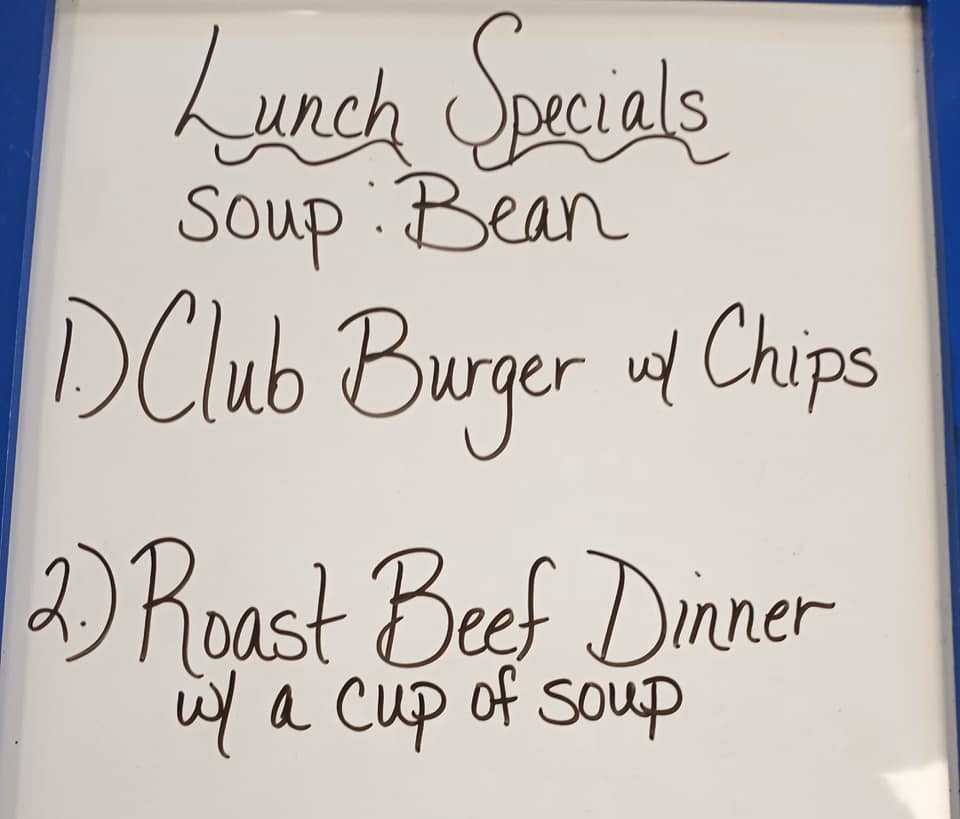 Lunch Specials
Soup: Bean
1.) Club Burger w/ Chips
2.) Roast Beef Dinner
w/ a cup of soup